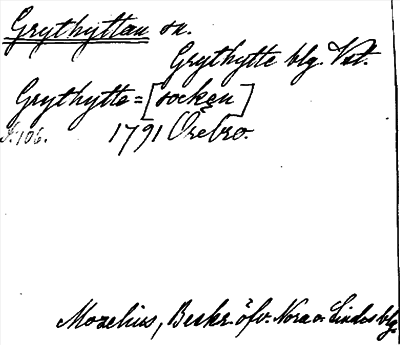 Grythyttan sn.
Grythytte blg. Vstm.
Grythytte=[socken]
S. 106. 1791 Örebro.
Mozelius, Beskr. öfv. Nora o. Lindes blg.